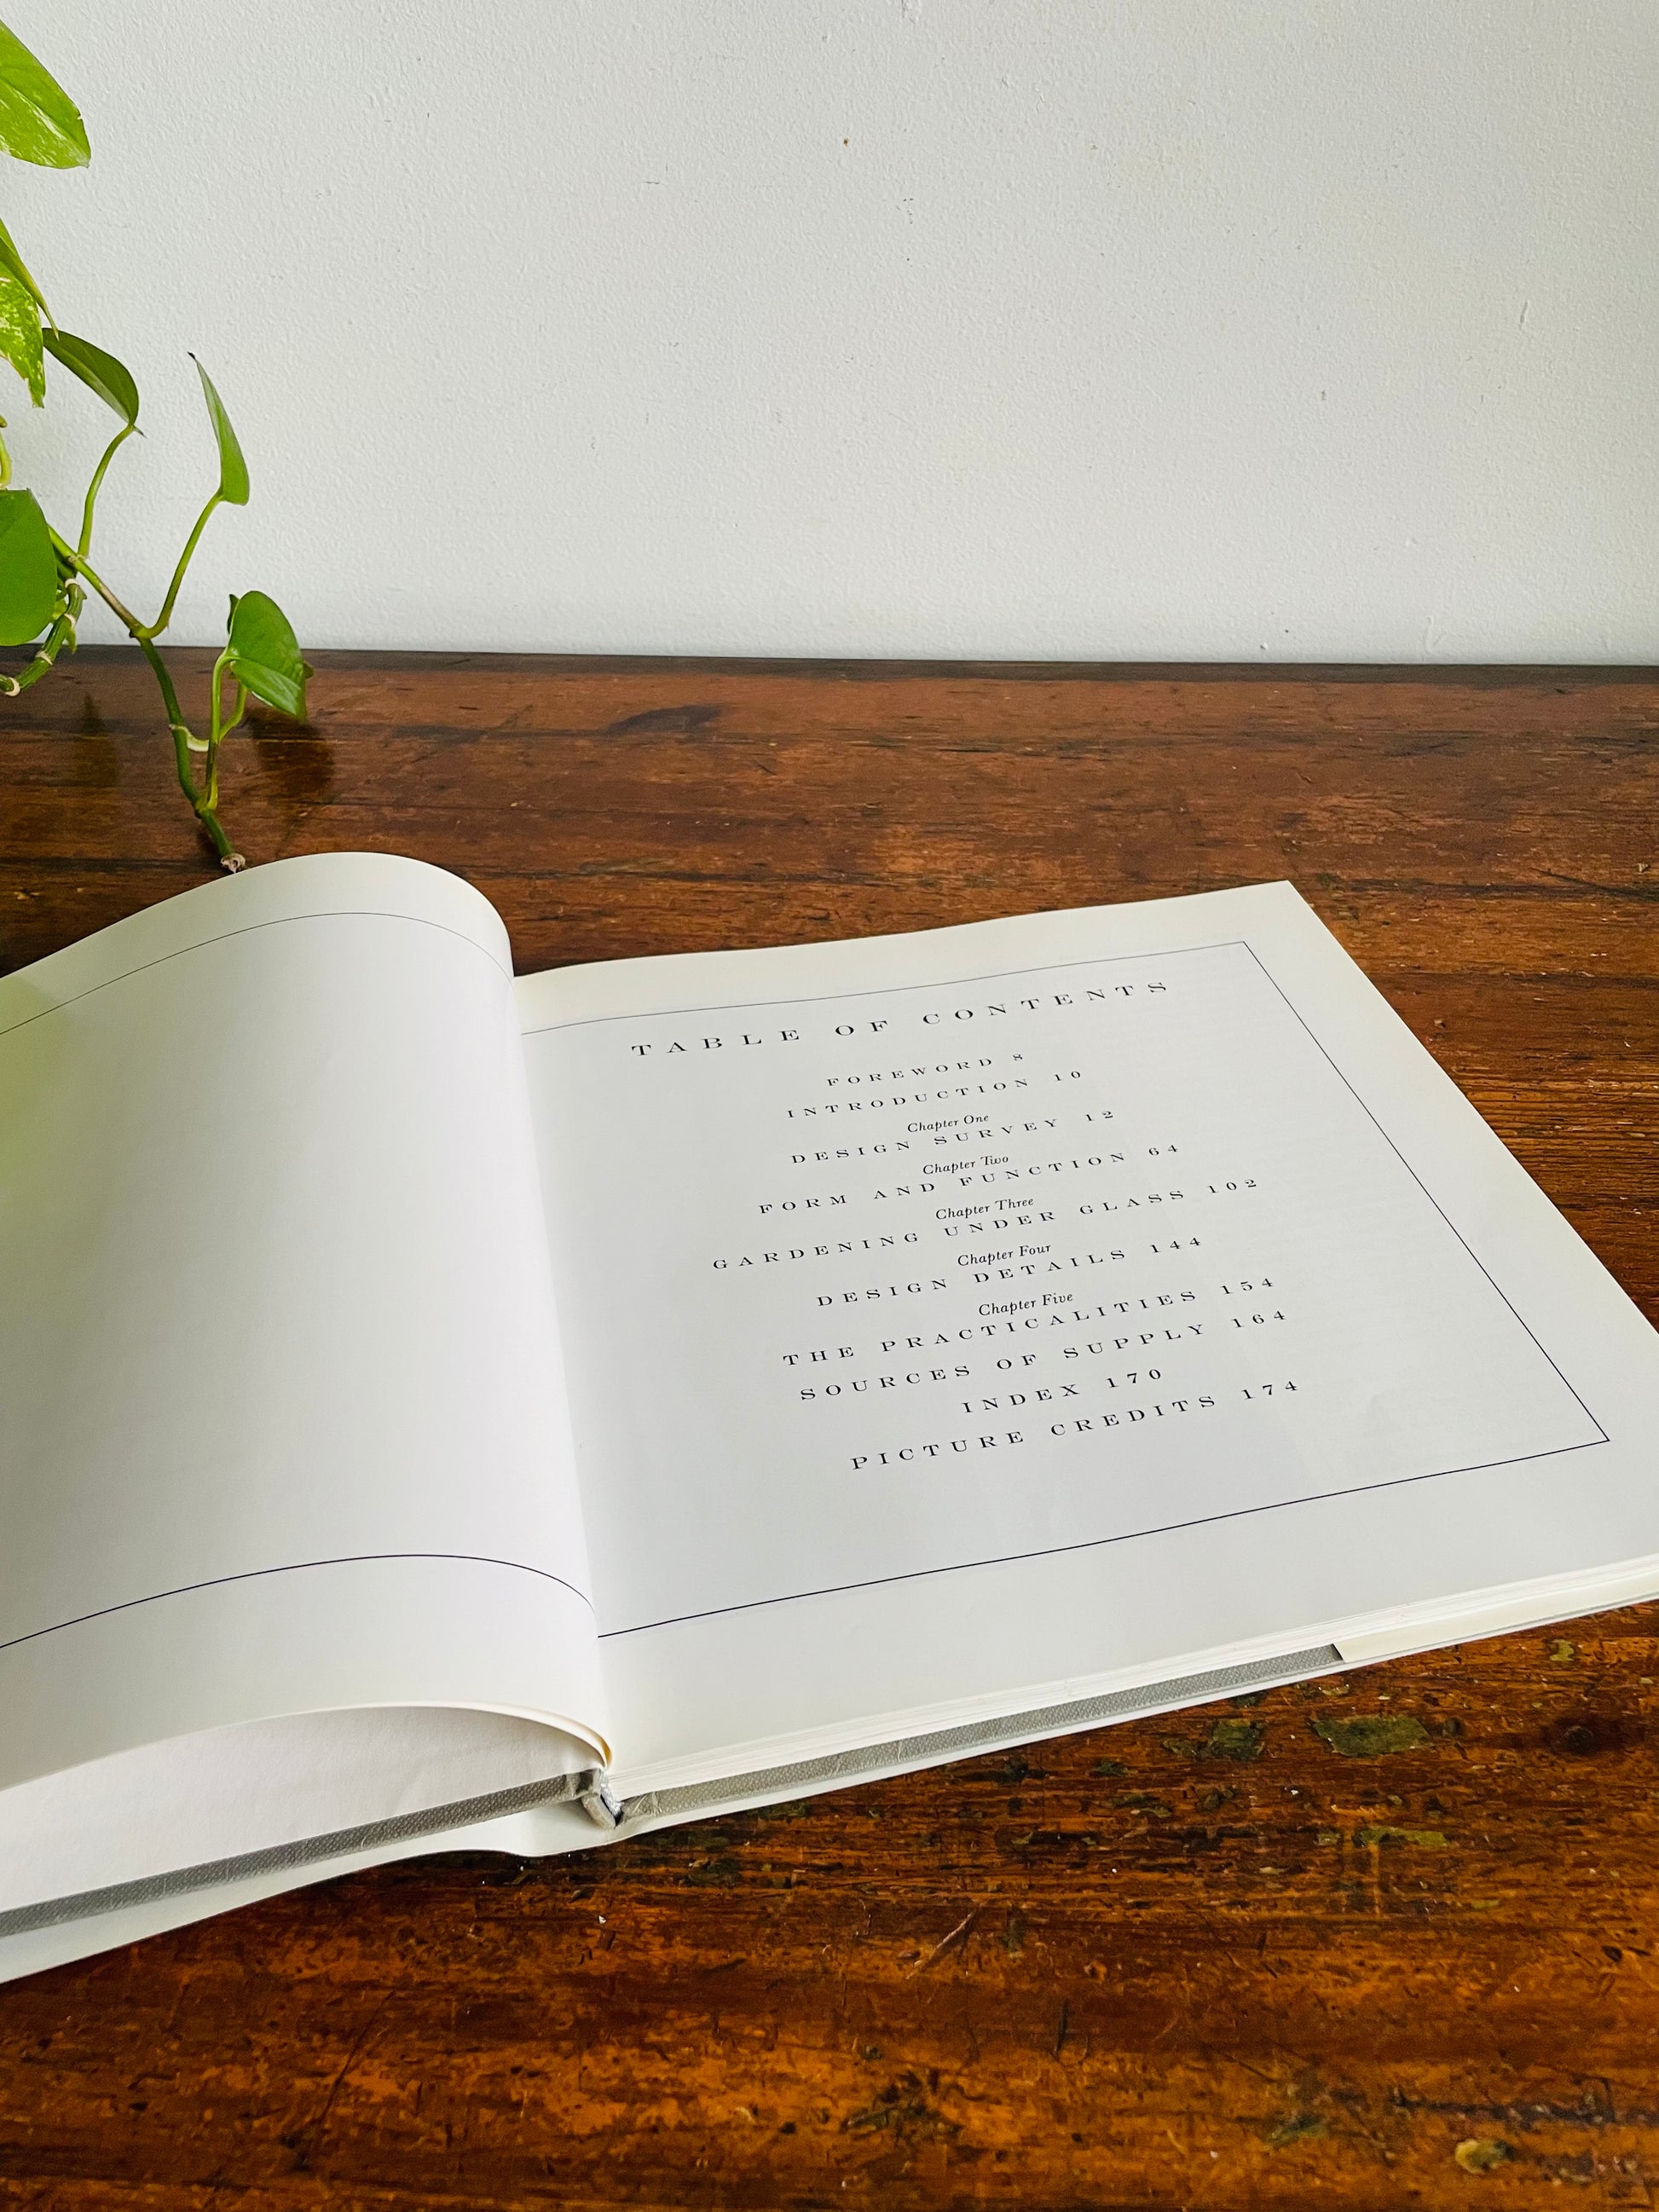 TABLE OF CONTENTS
FOREWORD 8
INTRODUCTION 10
Chapter One
DESIGN SURVEY 12
Chapter Two
FORM AND FUNCTION 64
Chapter Three
GARDENING UNDER GLASS 102
Chapter Four
DESIGN DETAILS 144
Chapter Five
THE PRACTICALITIES 154
SOURCES OF SUPPLY 164
INDEX 170
PICTURE CREDITS 174